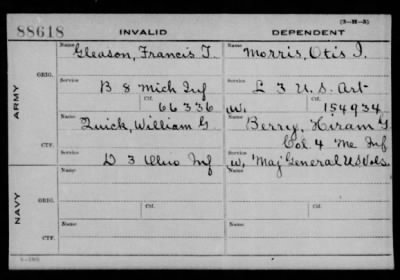 (3-H-3)
88618 INVALID DEPENDENT
ARMY
ORIG.
Name Gleason, Francis T. Name Morris, Otis I.
Service B 8 Mich Inf Service L 3 U.S. Art
Ctf. 66336 W. Ctf. 154934
CTF.
Name Quick, William G. Name Berry, Hiram G.
Col 4 Me Inf
Service D 3 Inf Service W. Maj General U S Vols.
NAVY
ORIG.
Name Name
Service Service
Ctf. Ctf.
CTF.
Name Name
Service Service